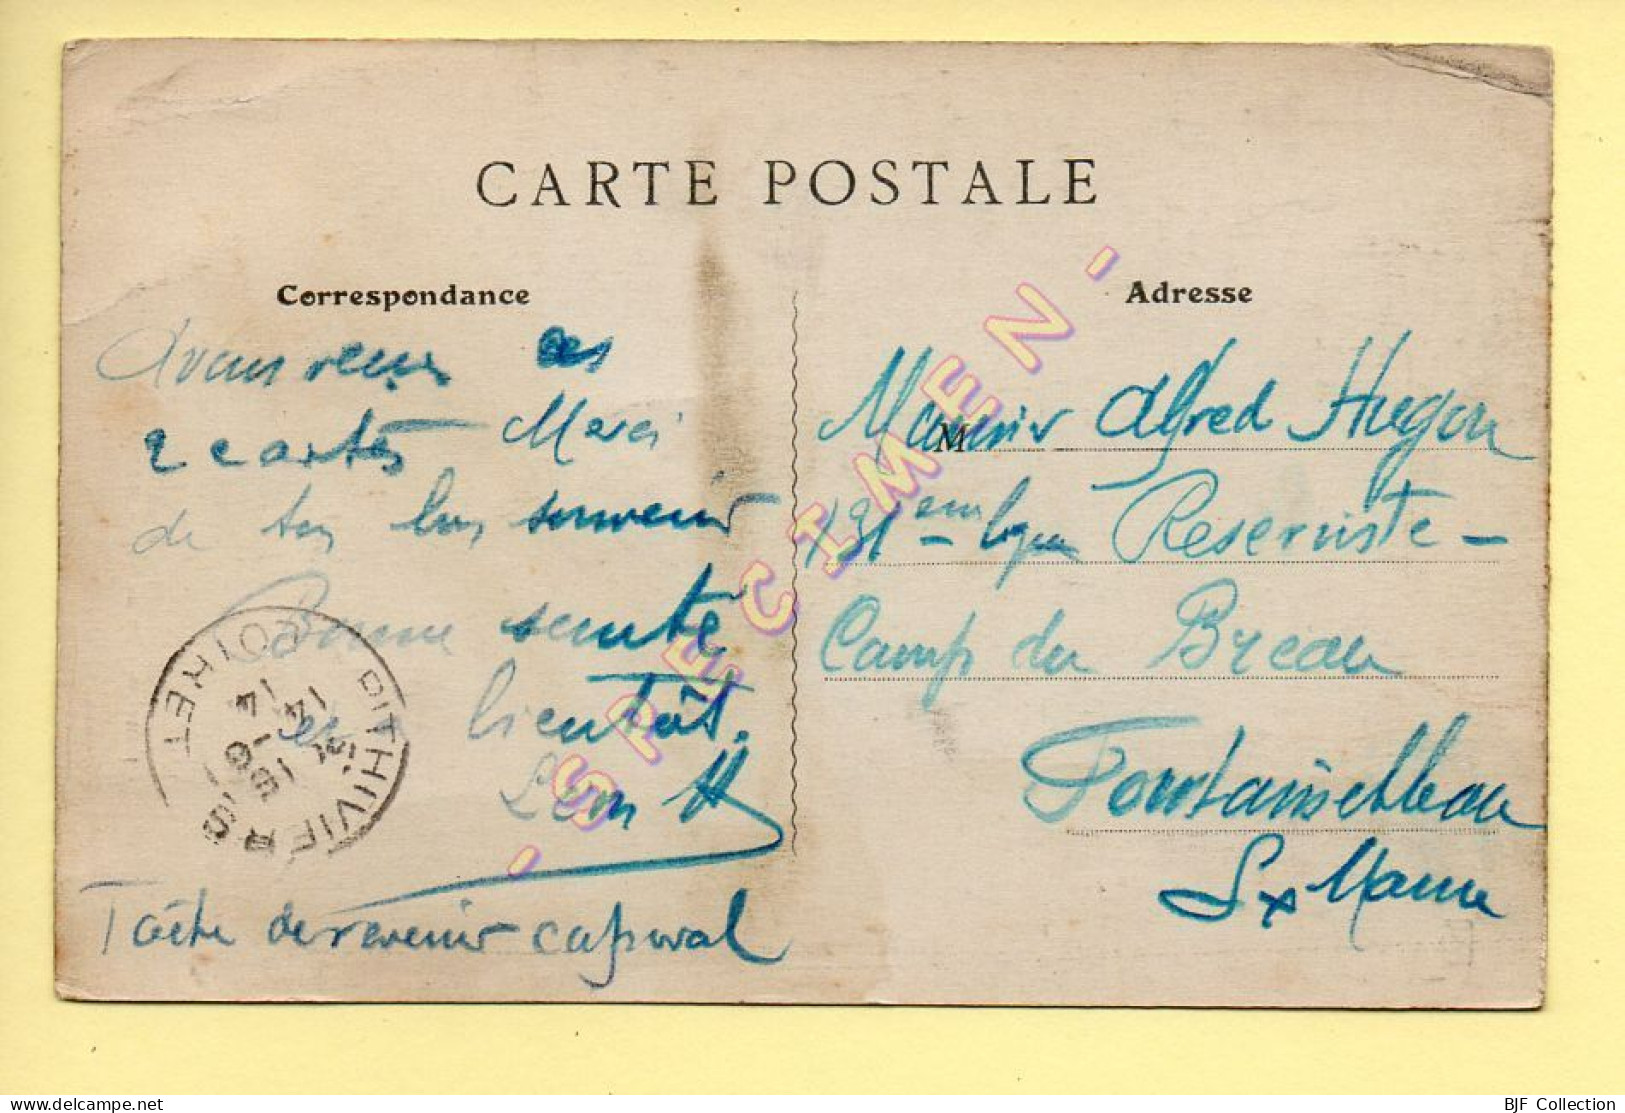 CARTE POSTALE
Correspondance
Avons reçu ces
2 cartes Merci
de ton bon souvenir
Bonne santé
et bientôt.
Léon H
Tâche de revenir caporal
PITHIVIERS LOIRET
14
Adresse
M
Monsieur Alfred Hugon
131 eme Reserviste -
Camp du Breau
Fontainebleau
S x Marne
- SPECIMEN -
www.delcampe.net
BJF Collection